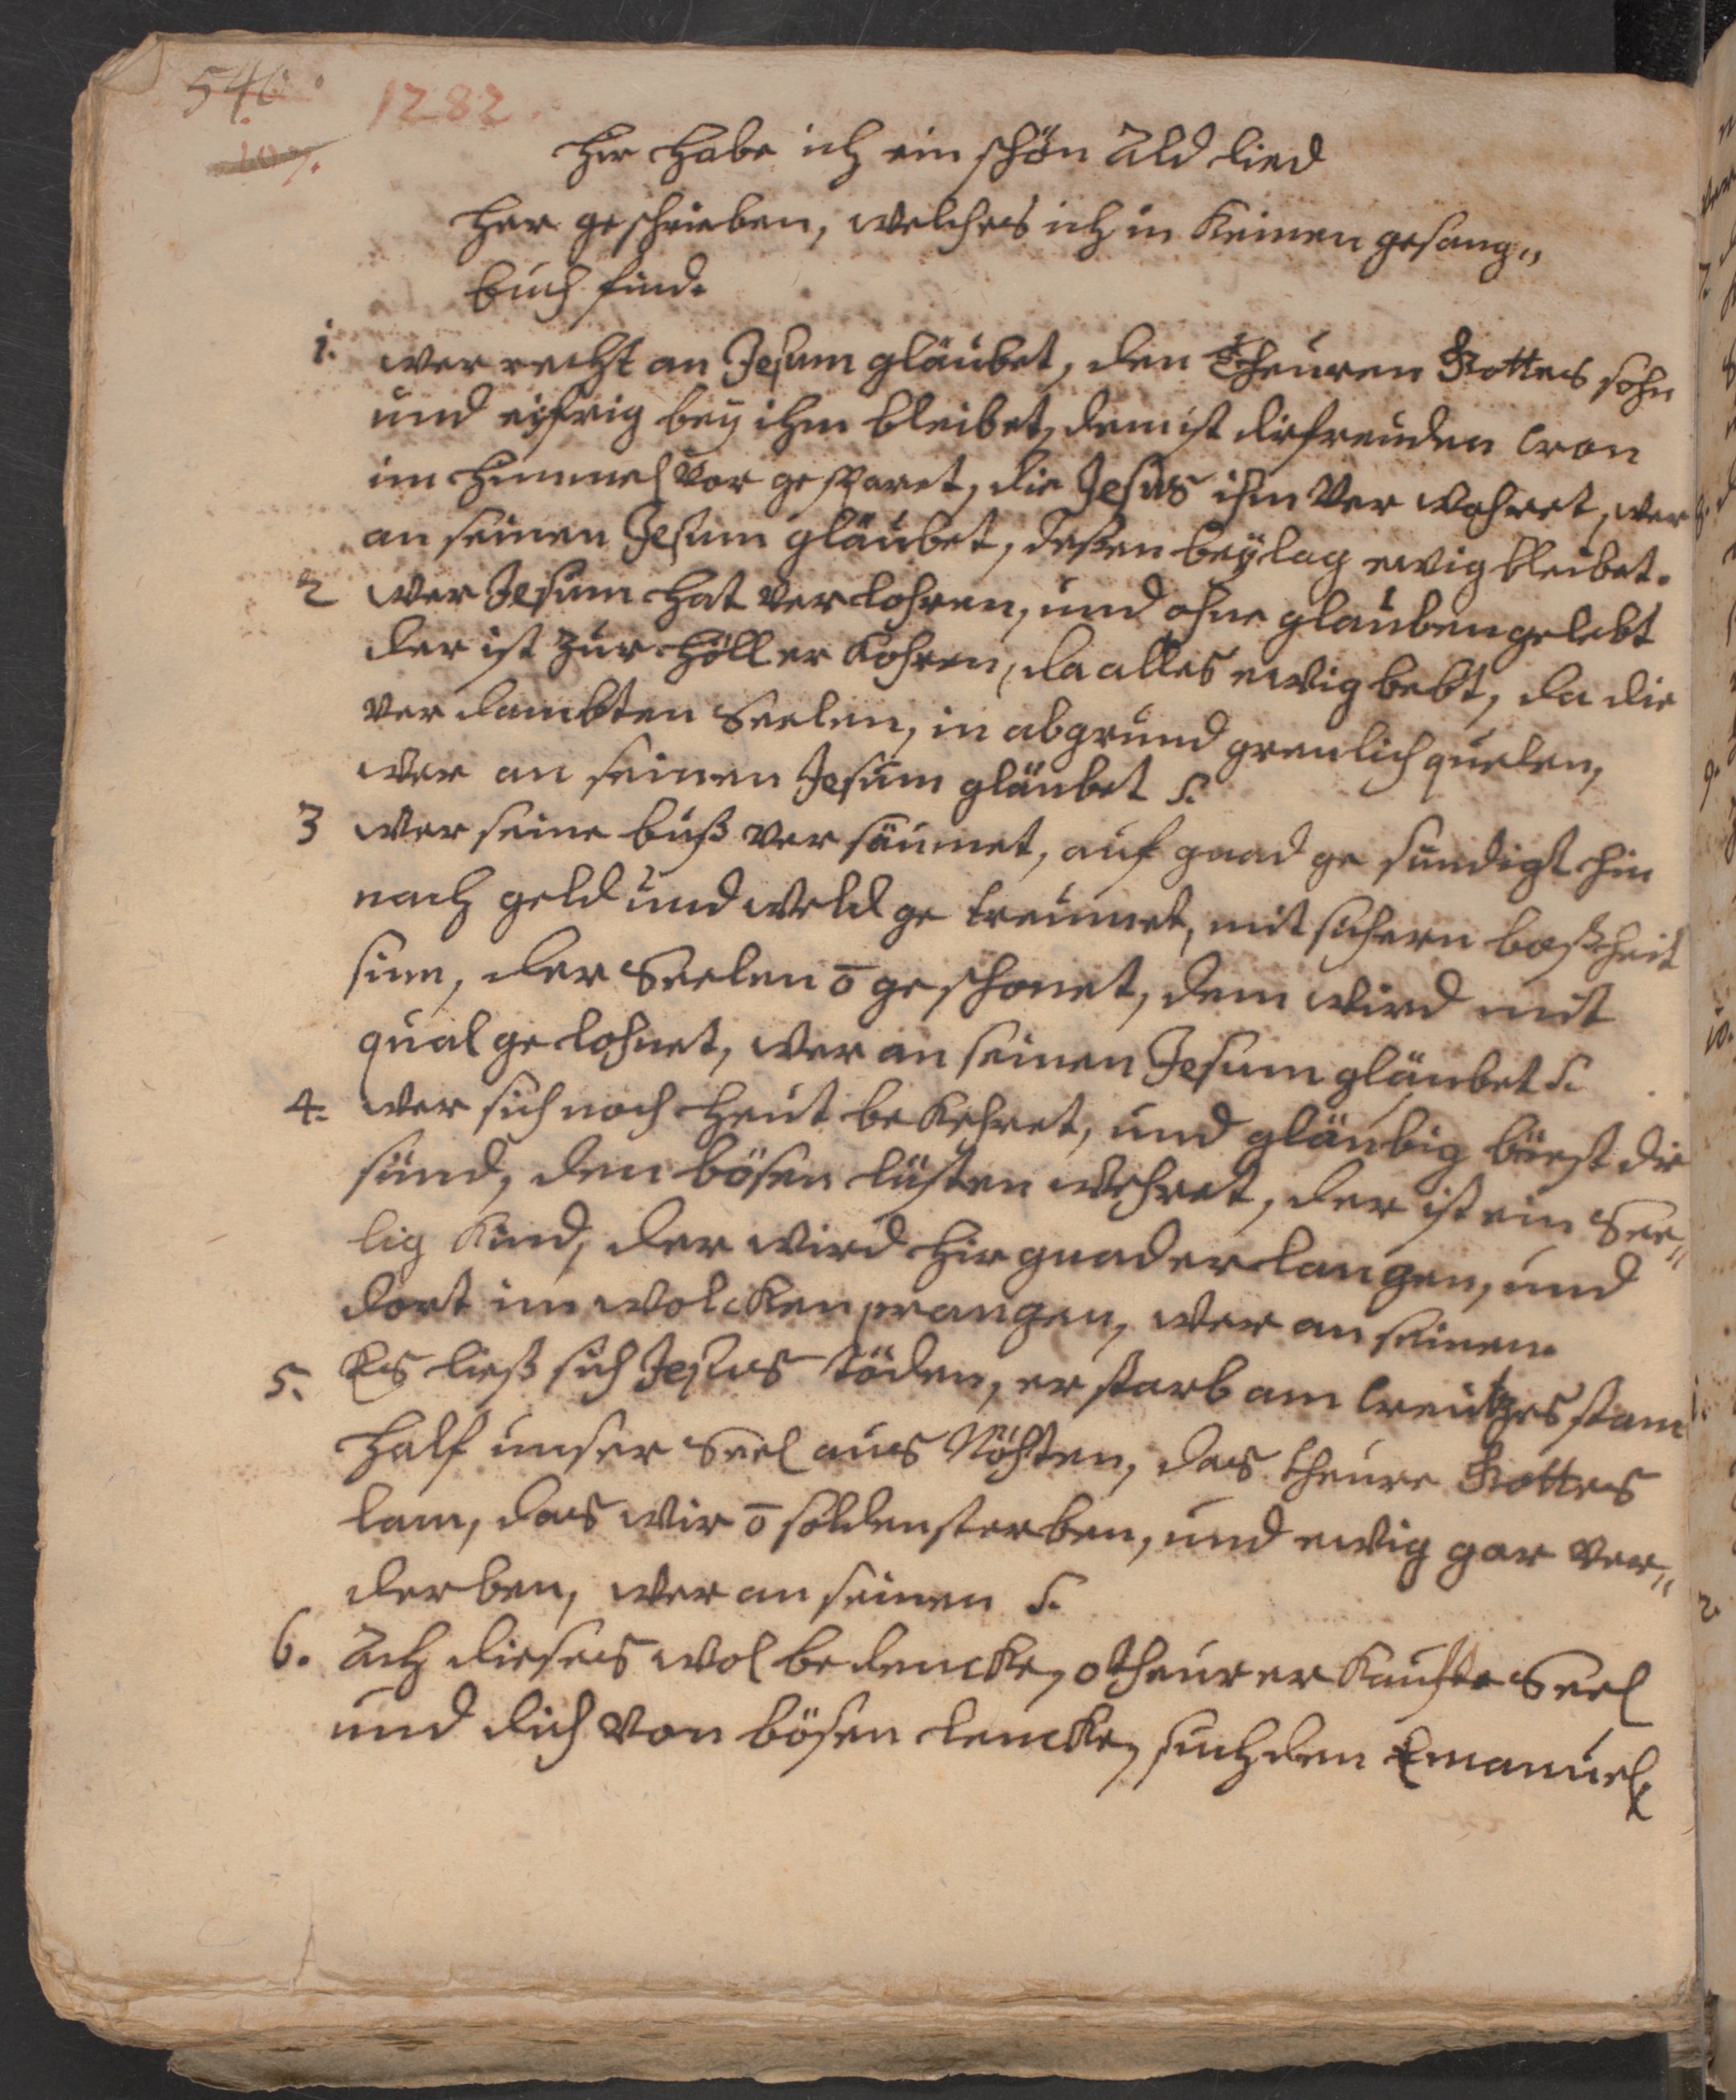 540.
1282.
107.
Hir habe ich ein schön Ald lied
her geschrieben, welches ich in Keinen gesang„
buch find.
1. wer recht an Jesum gläubet, den Theuren Gottes sohn
und eyfrig bey ihm bleibet, dem ist die freuden Cron
im himmel vor gesparet, die Jesus ihm Ver wahret, wer
an seinen Jesum gläubet, deßen beylag ewig bleibet.
2 wer Jesum hat verlohren, und ohne glauben gelebt
der ist zur Höll er Kohren, da alles ewig bebt, da die
ver dambten Seelen, in abgrund greulich quelen,
wer an seinen Jesum gläubet &.
3 wer seine buß ver säumet, auf gnad ge sundigt hin
nach geld und weld ge treumet, mit sichern boßheit
sinn, der Seelen ō geschonet, dem wird mit
qual gelohnet, wer an seinen Jesum gläubet &.
4. wer sich noch heut be Kehret, und gläubig büest die
sünd, den bösen lüsten wehret, der ist ein See„
lig Kind, der wird hir gnad erlangen, und
dort im wolcken prangen, wer an seinen.
5. Es ließ sich Jesus töden, er starb am Creutzes stam
half unser Seel aus Nöhten, das theure Gottes
lam, das wir ō solden sterben, und ewig gar ver„
derben, wer an seinen &.
6. Ach dieses wol bedencke, o theur er Kaufte Seel
und dich von bösen lencke, such den Emanuel,